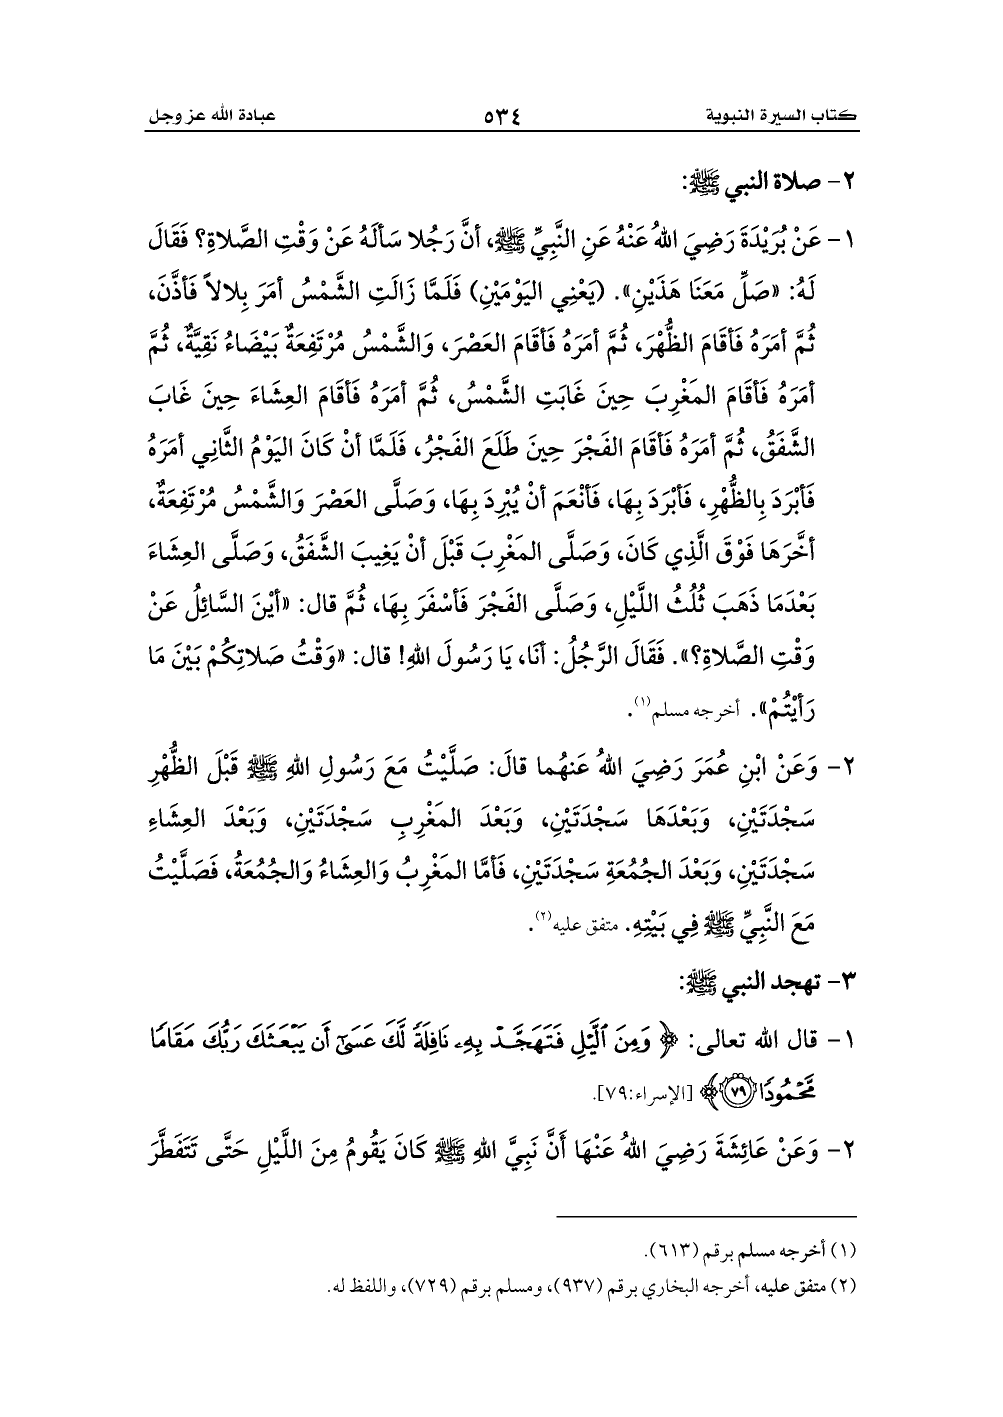 كتاب السيرة النبوية ٥٣٤ عبادة الله عز وجل
٢- صلاة النبي ﷺ:
١- عَنْ بُرَيْدَةَ رَضِيَ اللهُ عَنْهُ عَنِ النَّبِيِّ ﷺ، أنَّ رَجُلا سَألَهُ عَنْ وَقْتِ الصَّلاةِ؟ فَقَالَ
لَهُ: «صَلِّ مَعَنَا هَذَيْنِ». (يَعْنِي اليَوْمَيْنِ) فَلَمَّا زَالَتِ الشَّمْسُ أمَرَ بِلالاً فَأذَّنَ،
ثُمَّ أمَرَهُ فَأقَامَ الظُّهْرَ، ثُمَّ أمَرَهُ فَأقَامَ العَصْرَ، وَالشَّمْسُ مُرْتَفِعَةٌ بَيْضَاءُ نَقِيَّةٌ، ثُمَّ
أمَرَهُ فَأقَامَ المَغْرِبَ حِينَ غَابَتِ الشَّمْسُ، ثُمَّ أمَرَهُ فَأقَامَ العِشَاءَ حِينَ غَابَ
الشَّفَقُ، ثُمَّ أمَرَهُ فَأقَامَ الفَجْرَ حِينَ طَلَعَ الفَجْرُ، فَلَمَّا أنْ كَانَ اليَوْمُ الثَّانِي أمَرَهُ
فَأبْرَدَ بِالظُّهْرِ، فَأبْرَدَ بِهَا، فَأنْعَمَ أنْ يُبْرِدَ بِهَا، وَصَلَّى العَصْرَ وَالشَّمْسُ مُرْتَفِعَةٌ،
أخَّرَهَا فَوْقَ الَّذِي كَانَ، وَصَلَّى المَغْرِبَ قَبْلَ أنْ يَغِيبَ الشَّفَقُ، وَصَلَّى العِشَاءَ
بَعْدَمَا ذَهَبَ ثُلُثُ اللَّيْلِ، وَصَلَّى الفَجْرَ فَأسْفَرَ بِهَا، ثُمَّ قال: «أيْنَ السَّائِلُ عَنْ
وَقْتِ الصَّلاةِ؟». فَقَالَ الرَّجُلُ: أنَا، يَا رَسُولَ اللهِ! قال: «وَقْتُ صَلاتِكُمْ بَيْنَ مَا
رَأيْتُمْ». أخرجه مسلم(١).
٢- وَعَنْ ابْنِ عُمَرَ رَضِيَ اللهُ عَنهُما قالَ: صَلَّيْتُ مَعَ رَسُولِ اللهِ ﷺ قَبْلَ الظُّهْرِ
سَجْدَتَيْنِ، وَبَعْدَهَا سَجْدَتَيْنِ، وَبَعْدَ المَغْرِبِ سَجْدَتَيْنِ، وَبَعْدَ العِشَاءِ
سَجْدَتَيْنِ، وَبَعْدَ الجُمُعَةِ سَجْدَتَيْنِ، فَأمَّا المَغْرِبُ وَالعِشَاءُ وَالجُمُعَةُ، فَصَلَّيْتُ
مَعَ النَّبِيِّ ﷺ فِي بَيْتِهِ. متفق عليه(٢).
٣- تهجد النبي ﷺ:
١- قال الله تعالى: ﴿ وَمِنَ ٱلَّيْلِ فَتَهَجَّدْ بِهِۦ نَافِلَةً لَّكَ عَسَىٰٓ أَن يَبْعَثَكَ رَبُّكَ مَقَامًا
مَّحْمُودًا ٧٩ ﴾ [الإسراء:٧٩].
٢- وَعَنْ عَائِشَةَ رَضِيَ اللهُ عَنْهَا أَنَّ نَبِيَّ اللهِ ﷺ كَانَ يَقُومُ مِنَ اللَّيْلِ حَتَّى تَتَفَطَّرَ
(١) أخرجه مسلم برقم (٦١٣).
(٢) متفق عليه، أخرجه البخاري برقم (٩٣٧)، ومسلم برقم (٧٢٩)، واللفظ له.